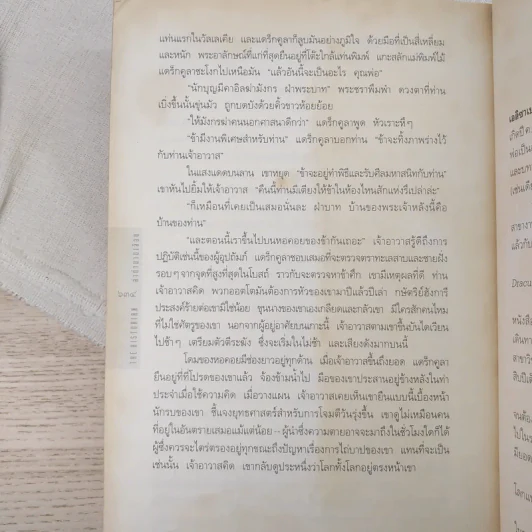 แท่นแรกในวัลเลเคีย และแดร็กคูลาก็ลูบมันอย่างภูมิใจ ด้วยมือที่เป็นสี่เหลี่ยม
และหนัก พระอาลักษณ์ที่แก่ที่สุดยืนอยู่ที่โต๊ะใกล้แท่นพิมพ์ แกะสลักแม่พิมพ์ไม้
แดร็กคูลาชะโงกไปเหนือมัน "แล้วอันนี้จะเป็นอะไร คุณพ่อ"
"นักบุญมีคาอิลฆ่ามังกร ฝ่าพระบาท" พระชราพึมพำ ดวงตาที่ท่าน
เบิ่งขึ้นนั้นขุ่นมัว ถูกบดบังด้วยคิ้วขาวห้อยย้อย
"ให้มังกรฆ่าคนนอกศาสนาดีกว่า" แดร็กคูลาพูด หัวเราะหึๆ
"ข้ามีงานพิเศษสำหรับท่าน" แดร็กคูลาบอกท่าน "ข้าจะทิ้งภาพร่างไว้
กับท่านเจ้าอาวาส"
ในแสงแดดบนลาน เขาหยุด "ข้าจะอยู่ทำพิธีและรับศีลมหาสนิทกับท่าน"
เขาหันไปยิ้มให้เจ้าอาวาส "คืนนี้ท่านมีเตียงให้ข้าในห้องไหนสักแห่งรึเปล่าล่ะ"
"ก็เหมือนที่เคยเป็นเสมอนั่นละ ฝ่าบาท บ้านของพระเจ้าหลังนี้คือ
บ้านของท่าน"
"และตอนนี้เราขึ้นไปบนหอคอยของข้ากันเถอะ" เจ้าอาวาสรู้ดีถึงการ
ปฏิบัติเช่นนี้ของผู้อุปถัมภ์ แดร็กคูลาชอบเสมอที่จะตรวจตราทะเลสาบและชายฝั่ง
รอบๆ จากจุดที่สูงที่สุดในโบสถ์ ราวกับจะตรวจหาข้าศึก เขามีเหตุผลที่ดี ท่าน
เจ้าอาวาสคิด พวกออตโตมันต้องการหัวของเขามาปีแล้วปีเล่า กษัตริย์ฮังการี
ประสงค์ร้ายต่อเขามิใช่น้อย ขุนนางของเขาเองเกลียดและกลัวเขา มีใครสักคนไหม
ที่ไม่ใช่ศัตรูของเขา นอกจากผู้อยู่อาศัยบนเกาะนี้ เจ้าอาวาสตามเขาขึ้นบันไดเวียน
ไปช้าๆ เตรียมตัวตีระฆัง ซึ่งจะเริ่มในไม่ช้า และเสียงดังมากบนนี้
โดมของหอคอยมีช่องยาวอยู่ทุกด้าน เมื่อเจ้าอาวาสขึ้นถึงยอด แดร็กคูลา
ยืนอยู่ที่ที่โปรดของเขาแล้ว จ้องข้ามน้ำไป มือของเขาประสานอยู่ข้างหลังในท่า
ประจำเมื่อใช้ความคิด เมื่อวางแผน เจ้าอาวาสเคยเห็นเขายืนแบบนี้เบื้องหน้า
นักรบของเขา ชี้แจงยุทธศาสตร์สำหรับการโจมตีวันรุ่งขึ้น เขาดูไม่เหมือนคน
ที่อยู่ในอันตรายเสมอแม้แต่น้อย – ผู้นำซึ่งความตายอาจจะมาถึงในชั่วโมงใดก็ได้
ผู้ซึ่งควรจะไตร่ตรองอยู่ทุกขณะถึงปัญหาเรื่องการไถ่บาปของเขา แทนที่จะเป็น
เช่นนั้น เจ้าอาวาสคิด เขากลับดูประหนึ่งว่าโลกทั้งโลกอยู่ตรงหน้าเขา
THE HISTORIAN
๖๓๔
Dracu